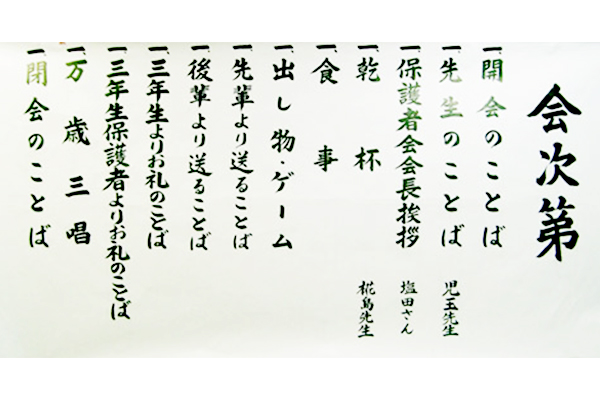 会次第
一、開会のことば
一、先生のことば 児玉先生
一、保護者会会長挨拶 塩田さん
一、乾杯 椛島先生
一、食事
一、出し物・ゲーム
一、先輩より送ることば
一、後輩より送ることば
一、三年生よりお礼のことば
一、三年生保護者よりお礼のことば
一、万歳三唱
一、閉会のことば